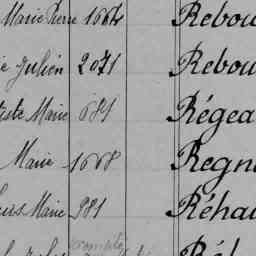 Marie Pierre 1664 Rebou
ie Julien 2071 Rebou
tiste Marie 681 Régea
Marie 1668 Regn
Marie 981 Réhau